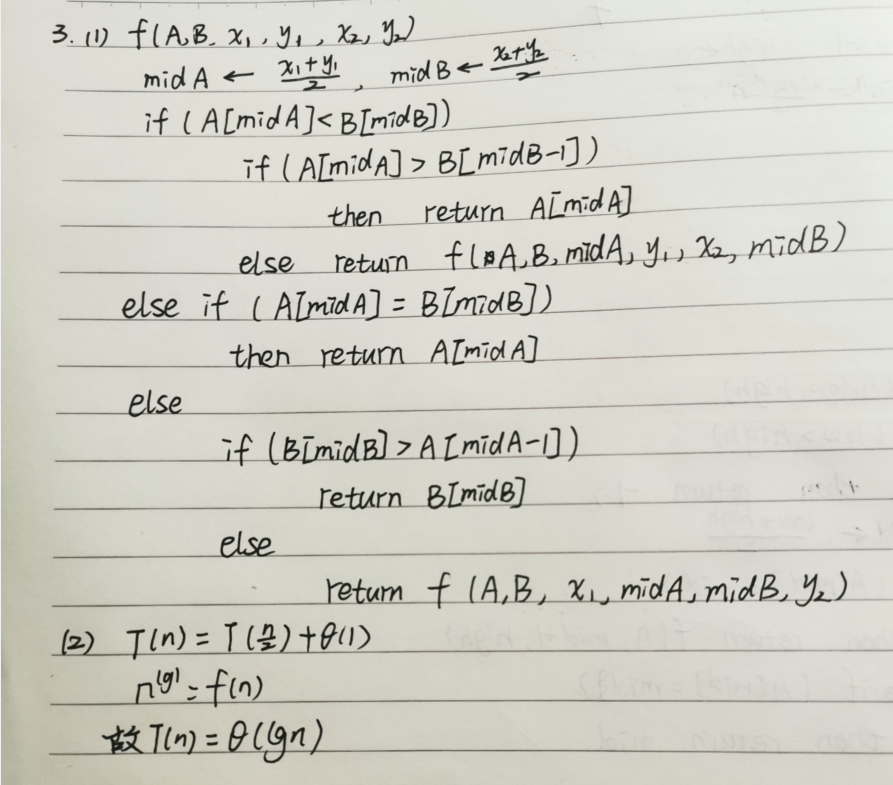 3. (1) f(A,B, x₁, y₁, x₂, y₂)
midA ← (x₁+y₁)/2, midB ← (x₂+y₂)/2
if (A[midA]<B[midB])
if (A[midA] > B[midB-1])
then return A[midA]
else return f(A,B, midA, y₁, x₂, midB)
else if (A[midA] = B[midB])
then return A[midA]
else
if (B[midB] > A[midA-1])
return B[midB]
else
return f (A,B, x₁, midA, midB, y₂)
(2) T(n) = T(n/2) + θ(1)
n^lg1 = f(n)
故 T(n) = θ(lgn)